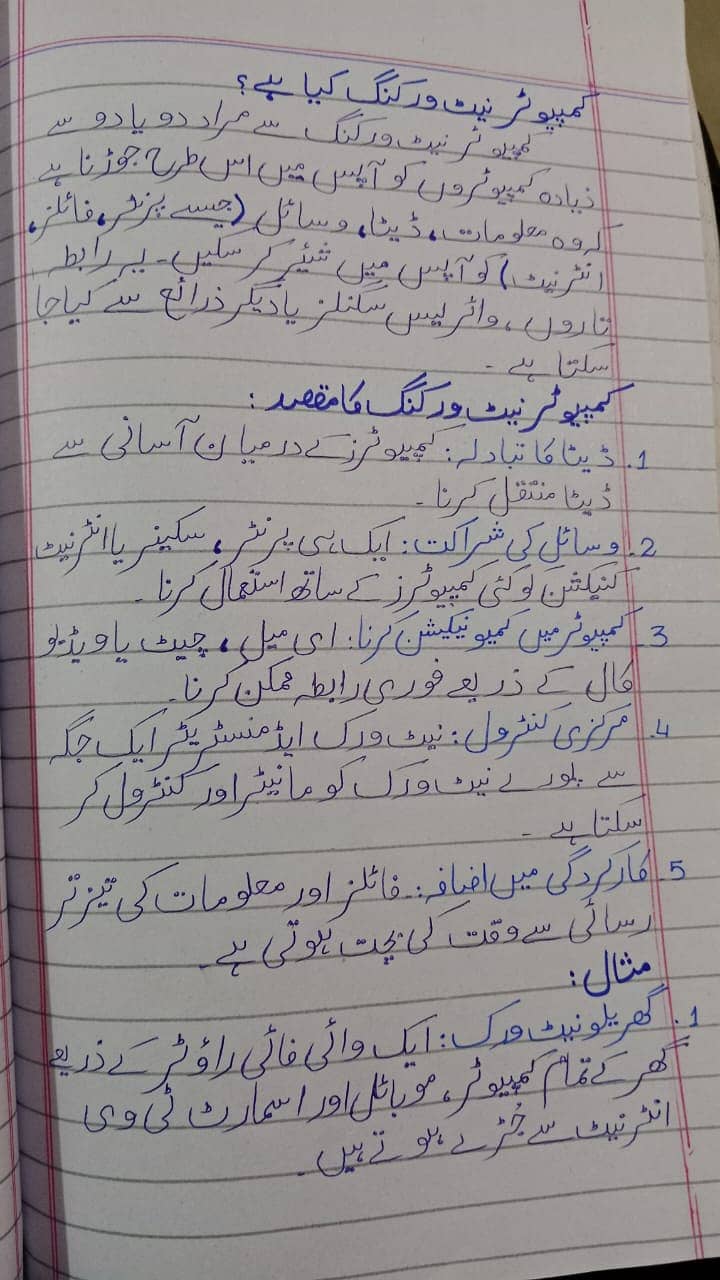 کمپیوٹر نیٹ ورکنگ کیا ہے؟
کمپیوٹر نیٹ ورکنگ سے مراد دو یا دو سے
زیادہ کمپیوٹروں کو آپس میں اس طرح جوڑنا ہے
کہ وہ معلومات، ڈیٹا، وسائل (جیسے پرنٹر، فائلز،
انٹرنیٹ) کو آپس میں شئیر کر سکیں۔ یہ رابطہ
تاروں، وائرلیس سگنلز یا دیگر ذرائع سے کیا جا
سکتا ہے۔
کمپیوٹر نیٹ ورکنگ کا مقصد:
1. ڈیٹا کا تبادلہ: کمپیوٹرز کے درمیان آسانی سے
ڈیٹا منتقل کرنا۔
2. وسائل کی شراکت: ایک ہی پرنٹر، سکینر یا انٹرنیٹ
کنیکشن کو کئی کمپیوٹرز کے ساتھ استعمال کرنا۔
3. کمپیوٹر میں کمیونیکیشن کرنا: ای میل، چیٹ یا ویڈیو
کال کے ذریعے فوری رابطہ ممکن کرنا۔
4. مرکزی کنٹرول: نیٹ ورک ایڈمنسٹریٹر ایک جگہ
سے پورے نیٹ ورک کو مانیٹر اور کنٹرول کر
سکتا ہے۔
5. کارکردگی میں اضافہ: فائلز اور معلومات کی تیز تر
رسائی سے وقت کی بچت ہوتی ہے۔
مثال:
1. گھریلو نیٹ ورک: ایک وائی فائی راؤٹر کے ذریعے
گھر کے تمام کمپیوٹر، موبائل اور اسمارٹ ٹی وی
انٹرنیٹ سے جُڑے ہوتے ہیں۔